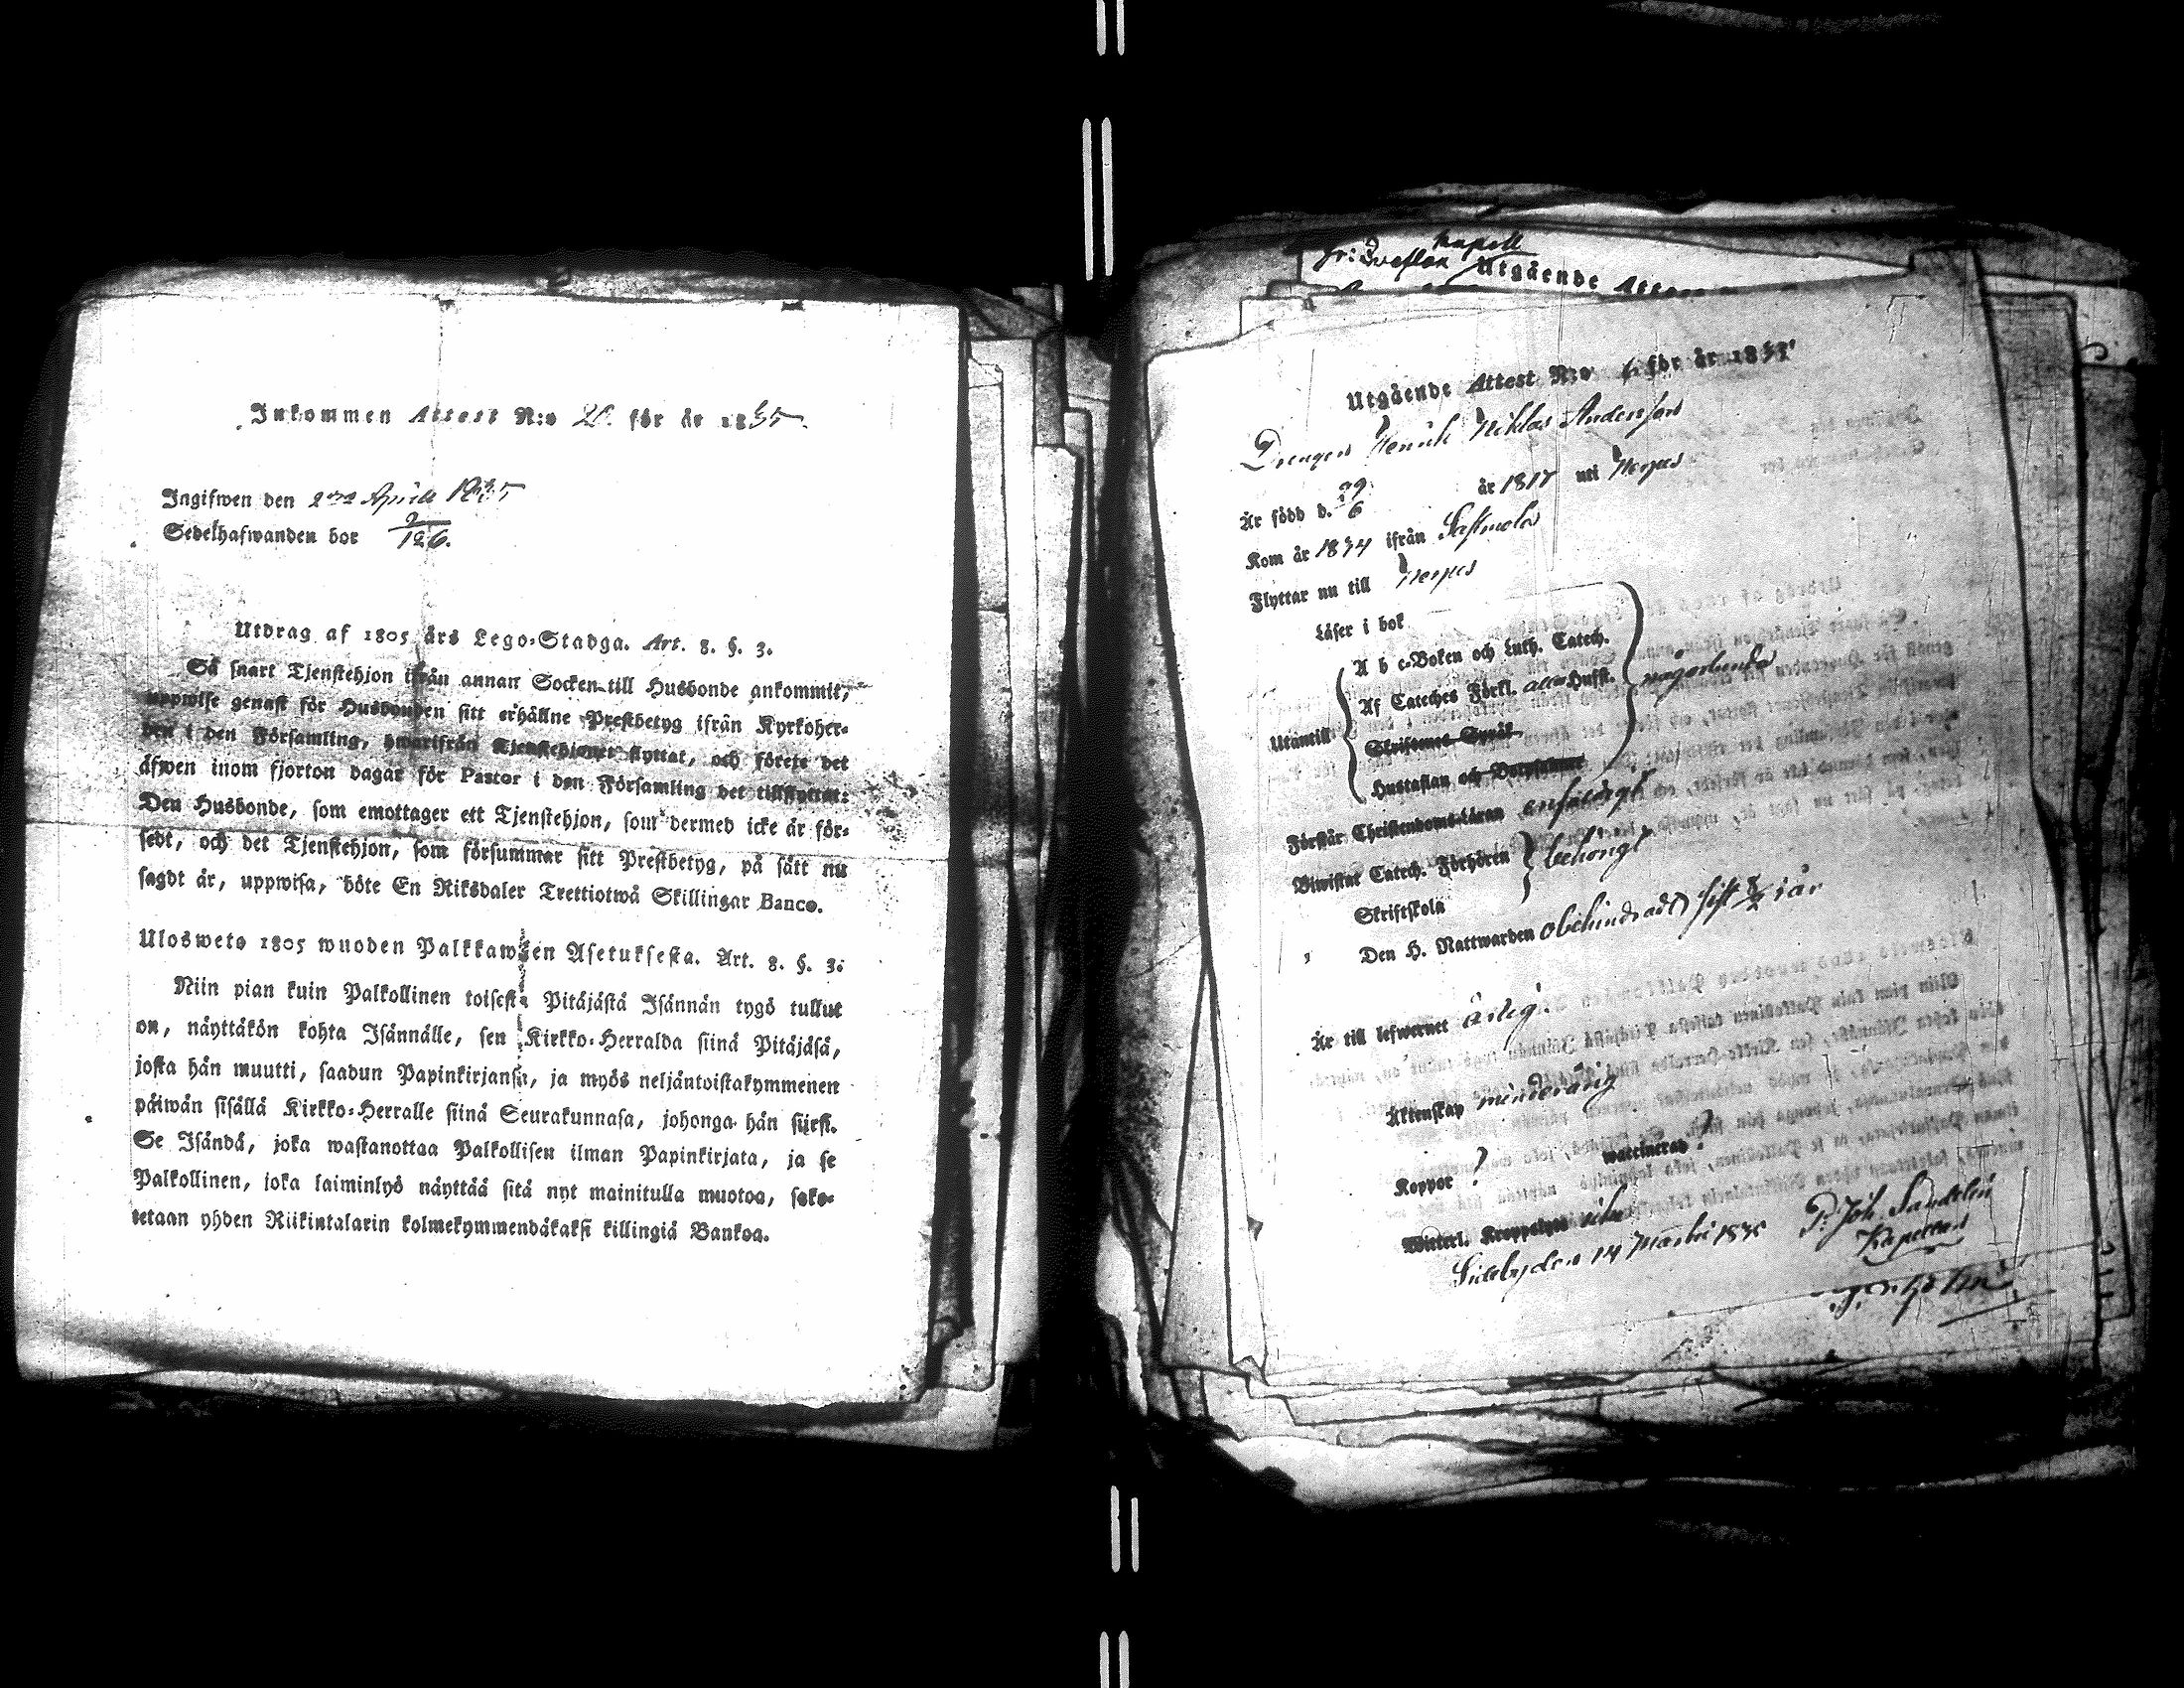 Inkommen Attest N:o 20. för år 1835.
Ingifwen den 2dra Aprill 1835
Sedelhafwanden bor 2/126.
Utdrag af 1805 års Lego-Stadga. Art. 8. §. 3.
Så snart Tjenstehjon ifrån annan Socken till Husbonde ankommit,
uppwise genast för Husbonden sitt erhållne Prestbetyg ifrån Kyrkoher-
den i den Församling, hwarifrån Tjenstehjonet flyttat, och förete det
äfwen inom fjorton dagar för Pastor i den Församling det tillflyttat:
Den Husbonde, som emottager ett Tjenstehjon, som dermed icke är för-
sedt, och det Tjenstehjon, som försummar sitt Prestbetyg, på sätt nu
sagdt är, uppwisa, böte En Riksdaler Trettiotwå Skillingar Banco.
Ulosweto 1805 wuoden Palkkawäen Asetuksesta. Art. 8. §. 3.
Niin pian kuin Palkollinen toisesta Pitäjästä Isännän tygö tullut
on, näyttäkön kohta Isännälle, sen Kirkko-Herralda siinä Pitäjäsä,
josta hän muutti, saadun Papinkirjansa, ja myös neljäntoistakymmenen
päiwän sisällä Kirkko-Herralle siinä Seurakunnasa, johonga hän siirsi.
Se Isändä, joka wastanottaa Palkollisen ilman Papinkirjata, ja se
Palkollinen, joka laiminlyö näyttää sitä nyt mainitulla muotoa, sako-
tetaan yhden Riikintalarin kolmekymmendäkaksi killingiä Bankoa.
kapell
Utgående Attest
Utgående Attest N:o 6 för år 1835
Drengen Henrik Niklas Andersson
Är född d. 29/6 år 1817 uti Nerpes
Kom år 1834 ifrån Sastmola
Flyttar nu till Nerpes
Läser i bok
Utantill
A b c-Boken och Luth. Catech.
Af Cateches Förkl. allt Husst.
Skriftenes Språk
Hustaflan och
någorlunda
Förstår Christendoms-Läran enfaldigt
Biwistat Catech. Förhören
Skriftskola
behörigt
Den H. Nattwarden obehindradt sist 8/2 i år
Är till lefwernet ärlig.
Äktenskap minderårig
Koppor ? waccinerad ?
Widerl. Kroppslyte utan
Sideby den 14 Martii 1835 P. Joh. Sandelin
Kapellan